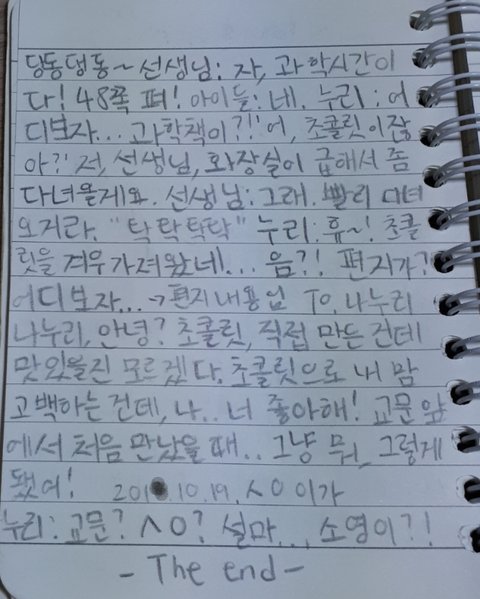 딩동댕동~ 선생님: 자, 과학시간이
다! 48쪽 펴! 아이들: 네. 누리: 어
디보자... 과학책이?!' 어, 초콜릿이잖
아?' 저, 선생님, 화장실이 급해서 좀
다녀올게요. 선생님: 그래. 빨리 다녀
오거라. "탁탁탁탁" 누리: 휴~! 초콜
릿을 겨우 가져왔네... 음?! 편지가?
어디보자... →편지내용임 To. 나누리
나누리, 안녕? 초콜릿, 직접 만든 건데
맛있을진 모르겠다. 초콜릿으로 내 맘
고백하는 건데, 나.. 너 좋아해! 교문 앞
에서 처음 만났을 때.. 그냥 뭐, 그렇게
됐어! 10.19. ㅅㅇ이가
누리: 교문? ㅅㅇ? 설마... 소영이?!
- The end -